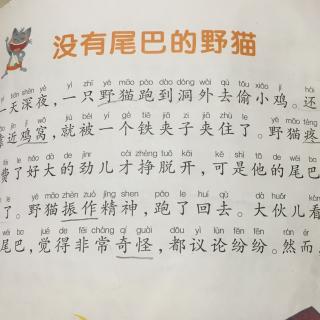 没有尾巴的野猫
tiān shēn yè yì zhī yě māo pǎo dào dòng wài qù tōu xiǎo jī hái
一天深夜，一只野猫跑到洞外去偷小鸡。还
jìn jī wō jiù bèi yí gè tiě jiā zi jiā zhù le yě māo téng
近鸡窝，就被一个铁夹子夹住了。野猫疼
fèi le hǎo dà de jìnr cái zhēng tuō kāi kě shì tā de wěi ba
费了好大的劲儿才挣脱开，可是他的尾巴
le yě māo zhèn zuò jīng shen pǎo le huí qù dà huǒr kàn
了。野猫振作精神，跑了回去。大伙儿看
wěi ba jué de fēi cháng qí guài dōu yì lùn fēn fēn rán ér
尾巴，觉得非常奇怪，都议论纷纷。然而，